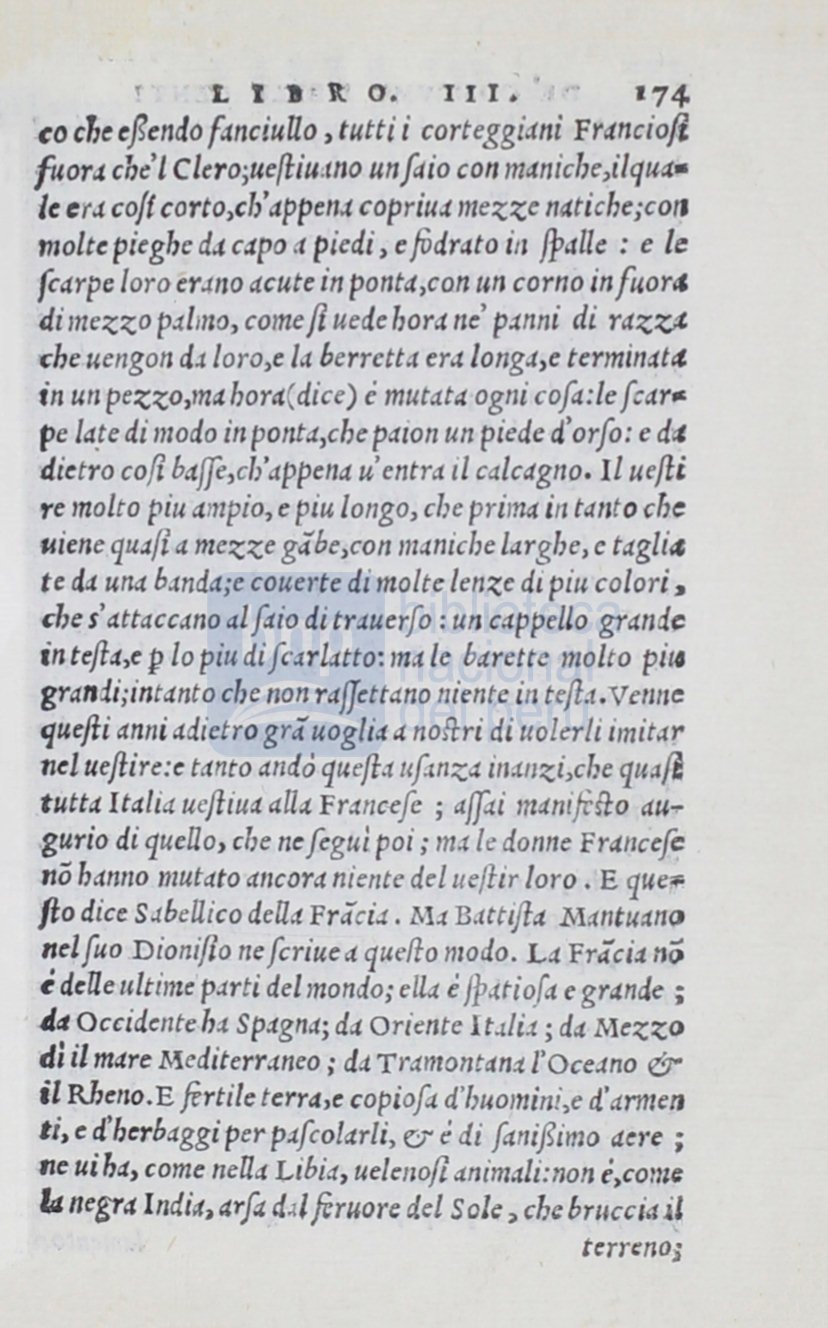 LIBRO. III. 174
co che eßendo fanciullo, tutti i corteggiani Franciosi
fuora che'l Clero; uestiuano un saio con maniche, ilqua-
le era cosi corto, ch'appena copriua mezze natiche; con
molte pieghe da capo a piedi, e fodrato in spalle : e le
scarpe loro erano acute in ponta, con un corno in fuora
di mezzo palmo, come si uede hora ne' panni di razza
che uengon da loro, e la berretta era longa, e terminata
in un pezzo, ma hora (dice) è mutata ogni cosa: le scar-
pe late di modo in ponta, che paion un piede d'orso: e da
dietro cosi basse, ch'appena u'entra il calcagno. Il uesti
re molto piu ampio, e piu longo, che prima in tanto che
uiene quasi a mezze gābe, con maniche larghe, e taglia
te da una banda; e couerte di molte lenze di piu colori,
che s'attaccano al saio di trauerso : un cappello grande
in testa, e p lo piu di scarlatto: ma le barette molto piu
grandi; intanto che non rassettano niente in testa. Venne
questi anni adietro grā uoglia a nostri di uolerli imitar
nel uestire: e tanto andò questa usanza inanzi, che quasi
tutta Italia uestiua alla Francese ; assai manifesto au-
gurio di quello, che ne seguì poi ; ma le donne Francese
nō hanno mutato ancora niente del uestir loro . E que-
sto dice Sabellico della Frācia . Ma Battista Mantuano
nel suo Dionisio ne scriue a questo modo. La Frācia nō
è delle ultime parti del mondo; ella è spatiosa e grande ;
da Occidente ha Spagna; da Oriente Italia ; da Mezzo
dì il mare Mediterraneo ; da Tramontana l'Oceano &
il Rheno. E fertile terra, e copiosa d'huomini, e d'armen
ti, e d'herbaggi per pascolarli, & è di sanißimo aere ;
ne ui ha, come nella Libia, uelenosi animali: non è, come
la negra India, arsa dal feruore del Sole, che bruccia il
terreno;
bnp biblioteca
nacional
del perú